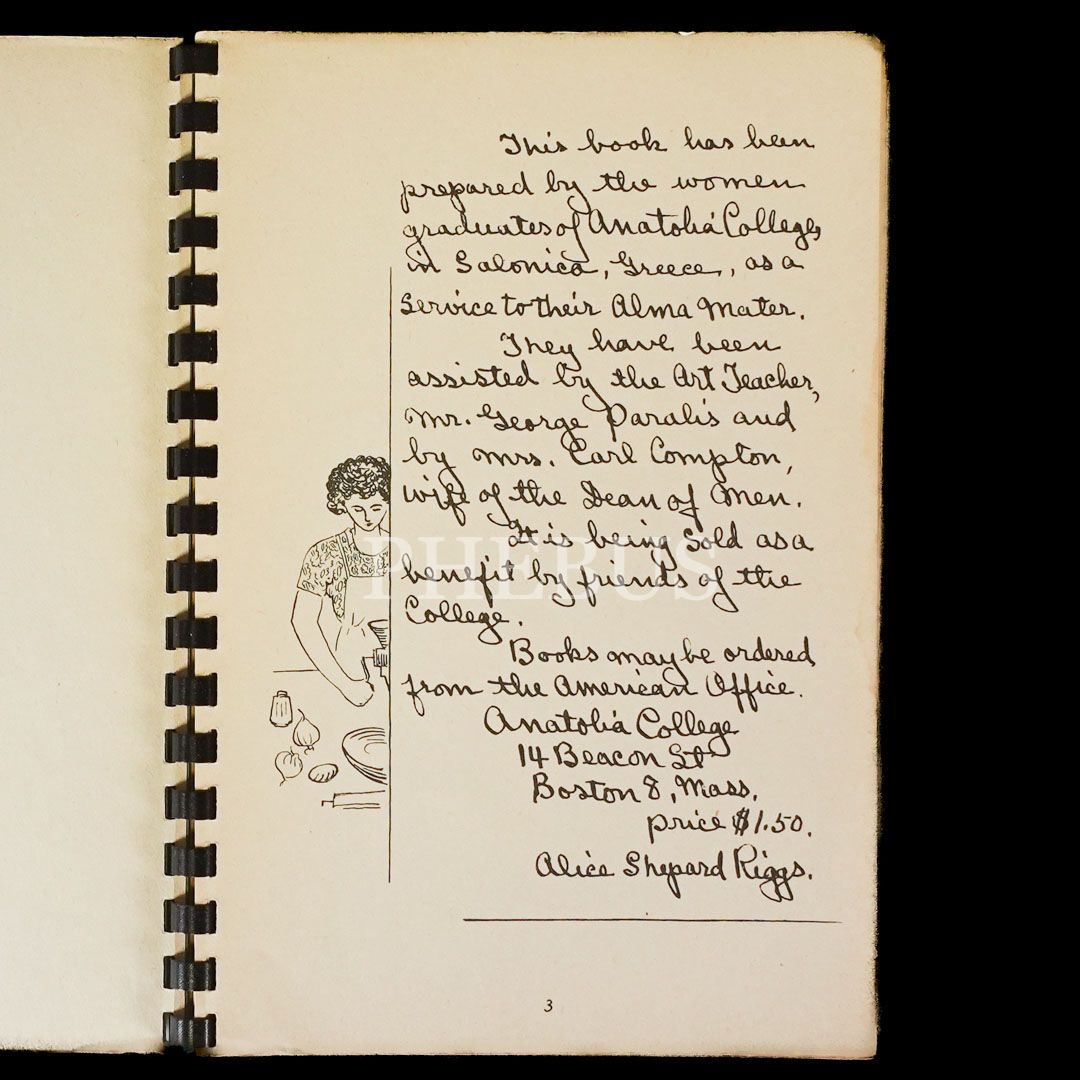 This book has been
prepared by the women
graduates of Anatolia College,
in Salonica, Greece, as a
Service to their Alma Mater.
They have been
assisted by the Art Teacher,
Mr. George Paralis and
by Mrs. Carl Compton,
wife of the Dean of Men.
It is being sold as a
PHEBUS
benefit by friends of the
College.
Books may be ordered
from the American Office.
Anatolia College
14 Beacon St
Boston 8, Mass.
price $1.50.
Alice Shepard Riggs.
3